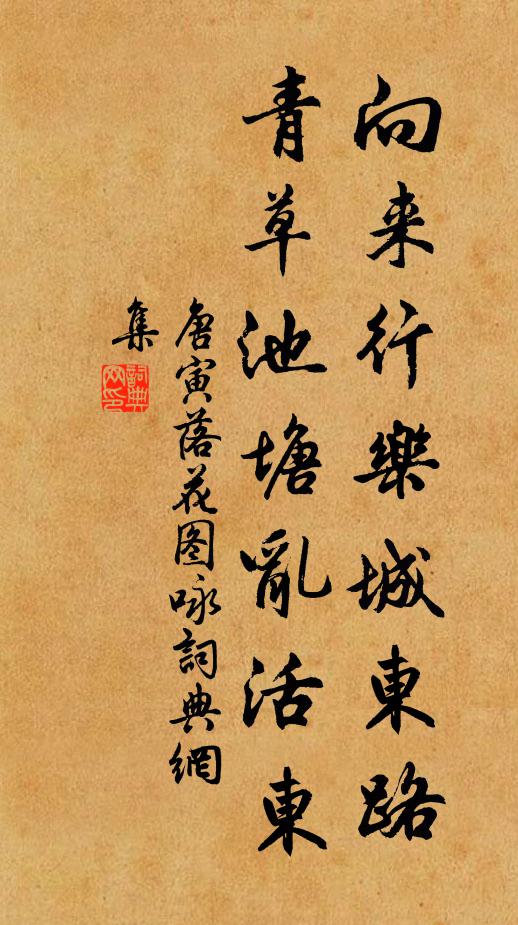 向来行樂城東路
青草池塘亂活東
唐寅落花图咏詞典網
集
詞典
网印